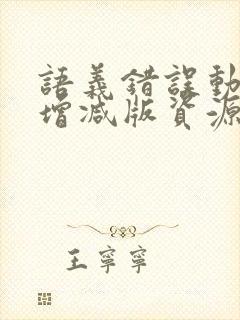 語義錯誤動
增減版資源
王寧寧